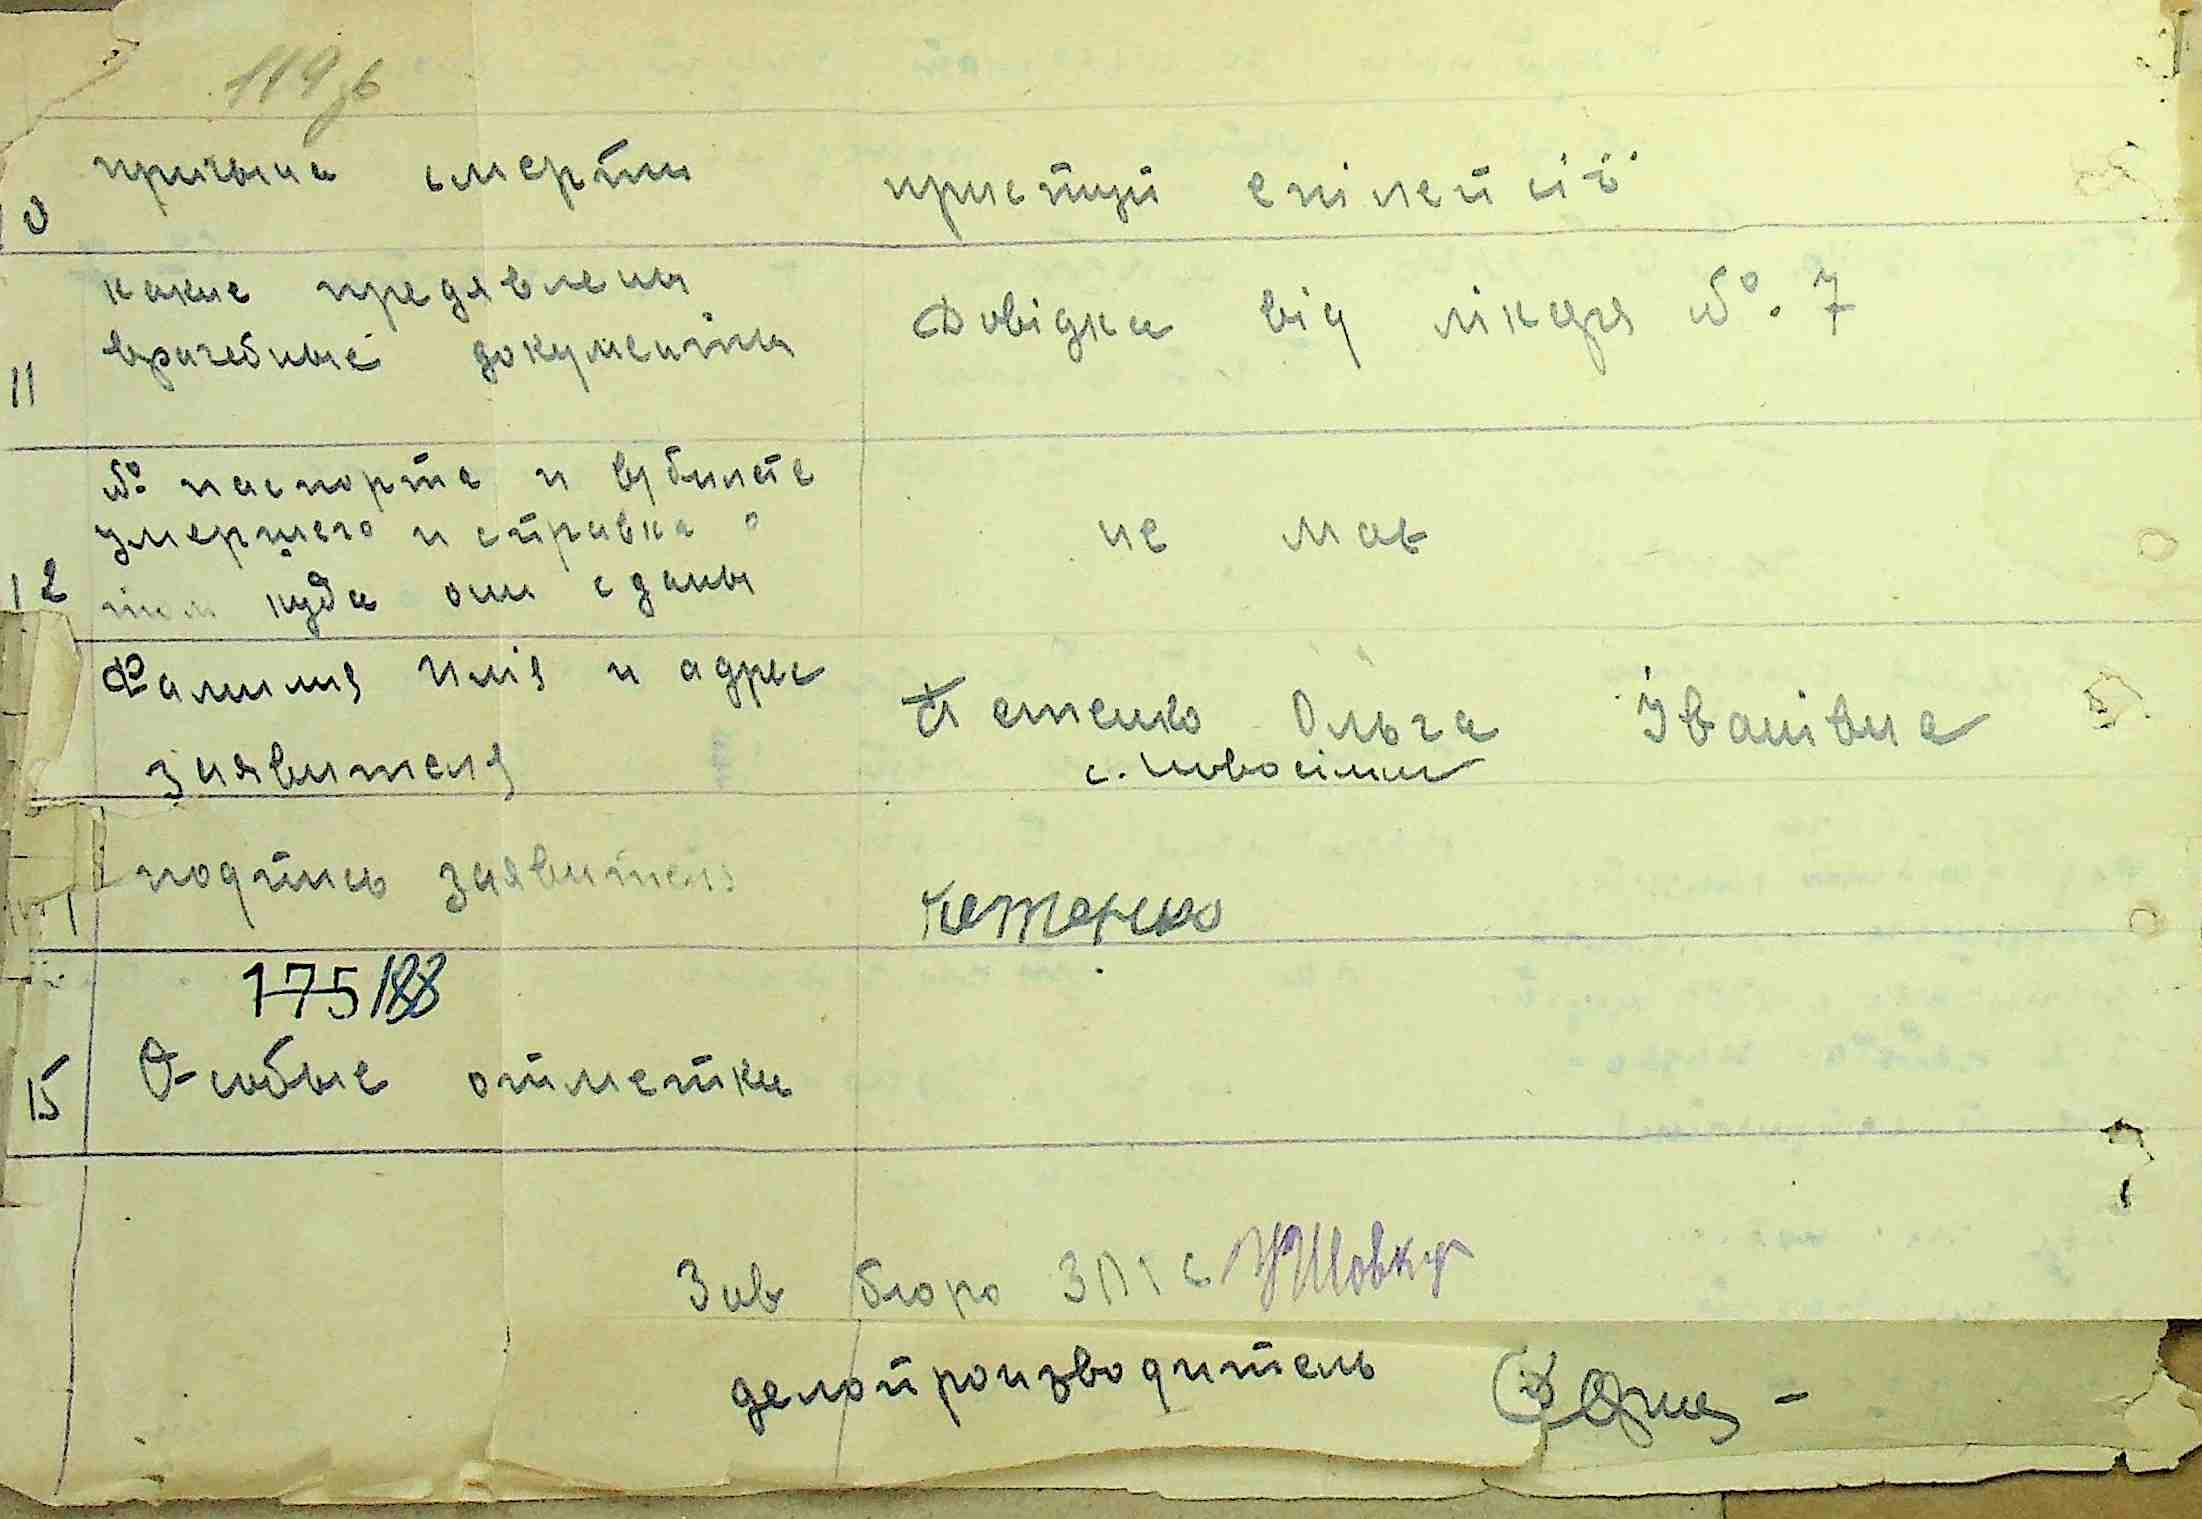 119 зв
причина смерти приступ епілепсії
10
какие предявлены
врачебные документы Довідка від лікаря №. 7
11
№ паспорта и в/билета
умершего и справка о не має
12 том куда они сданы
Фамилия Имя и адрес Кетенко Ольга Іванівна
заявителя с. Новосілки
подпись заявителя Кетенко
175 188
15 Особые отметки
Зав бюро ЗАГС
делопроизводитель